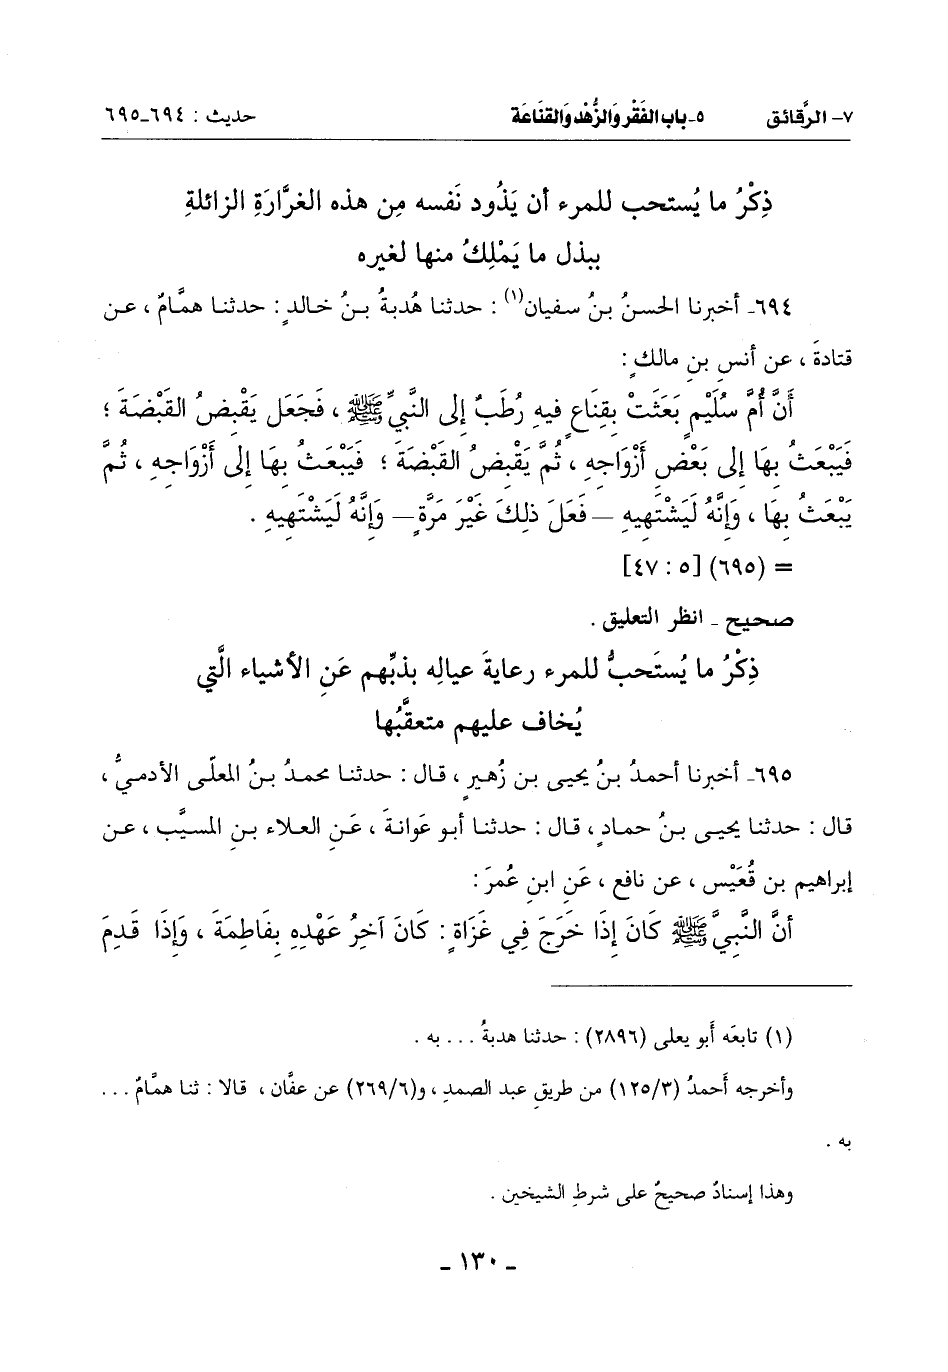 ٧- الرَّقائق ٥- باب الفَقْر وَالزُّهْد وَالقنَاعَة حديث : ٦٩٤-٦٩٥
ذِكْرُ ما يُستحب للمرء أن يَذُود نَفسه مِن هذه الغرَّارَةِ الزائلةِ
ببذل ما يَمْلِكُ منها لغيره
٦٩٤- أخبرنا الحسنُ بنُ سفيان(١) : حدثنا هُدبةُ بنُ خالدٍ : حدثنا همَّامٌ ، عن
قتادةَ ، عن أنسِ بنِ مالكٍ :
أَنَّ أُمَّ سُلَيْمٍ بَعَثَتْ بِقِنَاعٍ فيهِ رُطَبٌ إلى النَّبِيِّ ﷺ ، فَجَعَل يَقْبِضُ القَبْضَةَ ؛
فَيَبْعَثُ بِهَا إلى بَعْضِ أَزْوَاجِهِ ، ثُمَّ يَقْبِضُ القَبْضَةَ ؛ فَيَبْعَثُ بِهَا إلى أَزْوَاجِهِ ، ثُمَّ
يَبْعَثُ بِهَا ، وَإِنَّهُ لَيَشْتَهِيهِ – فَعَلَ ذلِكَ غَيْرَ مَرَّةٍ – وَإِنَّهُ لَيَشْتَهِيهِ .
= (٦٩٥) [٥ : ٤٧]
صحيح - انظر التعليق .
ذِكْرُ ما يُستَحبُّ للمرء رعايةَ عيالِه بذبِّهم عَنِ الأشياء الَّتي
يُخاف عليهم متعقَّبُها
٦٩٥- أخبرنا أحمدُ بنُ يحيى بنِ زُهيرٍ ، قال : حدثنا محمدُ بنُ المعلَّى الأدميُّ ،
قال : حدثنا يحيى بنُ حمادٍ ، قال : حدثنا أبو عَوانةَ ، عَنِ العلاء بنِ المسيَّب ، عن
إبراهيم بن قُعَيْس ، عن نافع ، عَنِ ابنِ عُمرَ :
أنَّ النَّبِيَّ ﷺ كَانَ إِذَا خَرَجَ فِي غَزَاةٍ : كَانَ آخِرُ عَهْدِهِ بِفَاطِمَةَ ، وَإِذَا قَدِمَ
(١) تابعَه أبو يعلى (٢٨٩٦) : حدثنا هدبةُ . . . به .
وأخرجه أحمدُ (٣/١٢٥) من طريقِ عبد الصمدِ ، و(٦/٢٦٩) عن عفَّان ، قالا : ثنا همَّامٌ . . .
به .
وهذا إسنادٌ صحيحٌ على شرطِ الشيخين .
- ١٣٠ -